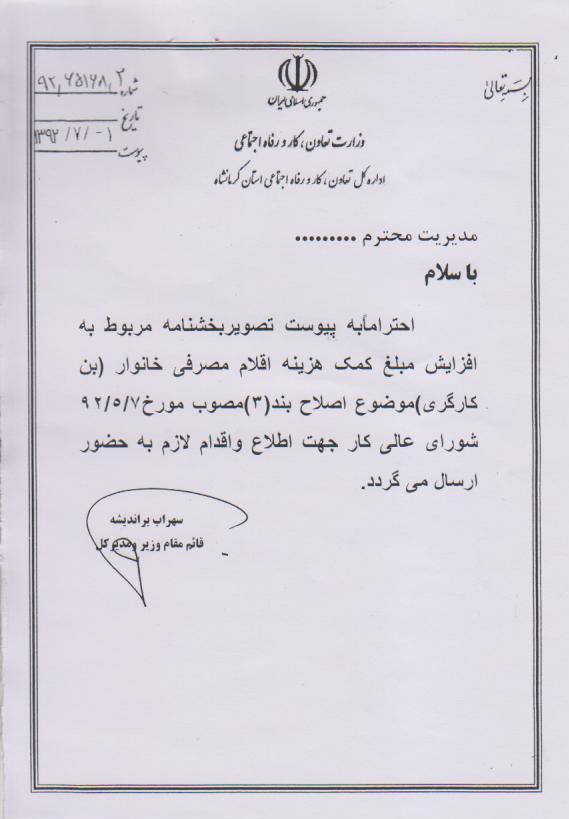 بسمه تعالی
جمهوری اسلامی ایران
وزارت تعاون، کار و رفاه اجتماعی
اداره کل تعاون، کار و رفاه اجتماعی استان کرمانشاه
شماره
تاریخ
۱۳۹۲/۷/-۱
پیوست
مدیریت محترم .........
با سلام
احتراماًبه پیوست تصویربخشنامه مربوط به
افزایش مبلغ کمک هزینه اقلام مصرفی خانوار (بن
کارگری)موضوع اصلاح بند(۳)مصوب مورخ۹۲/۵/۷
شورای عالی کار جهت اطلاع واقدام لازم به حضور
ارسال می گردد.
سهراب براندیشه
قائم مقام وزیر ومدیرکل